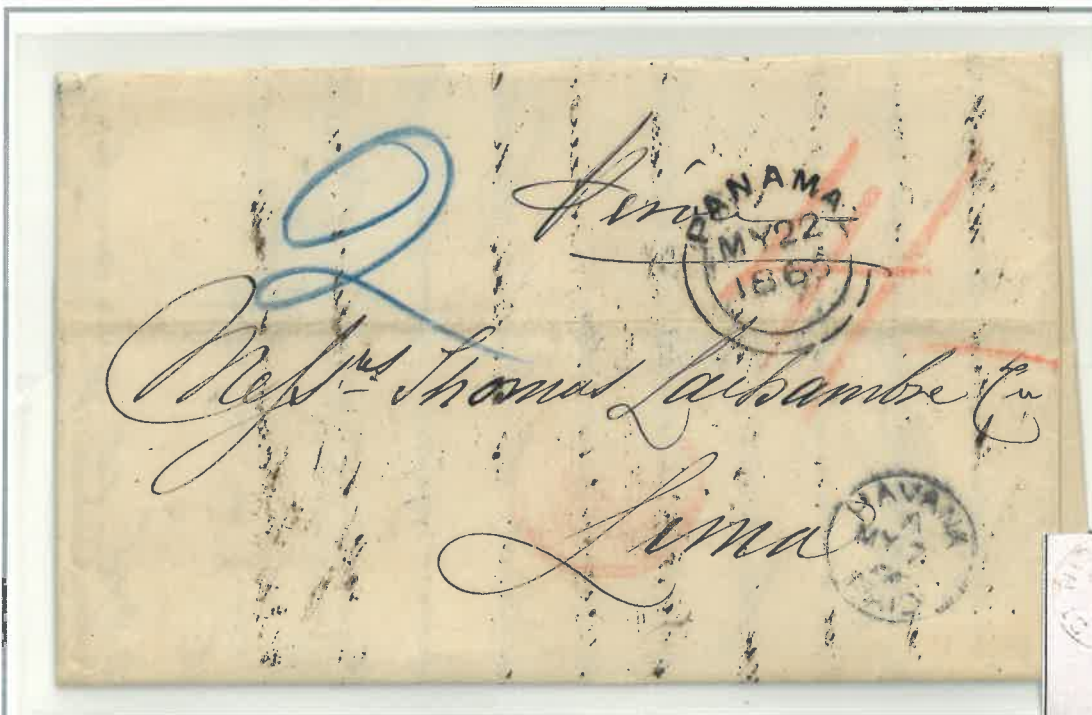 2
Perú
PANAMA
MY 22
1863
4
Messrs Thomas Lachambre Cu
Lima
HAVANA
MY 7
PAID